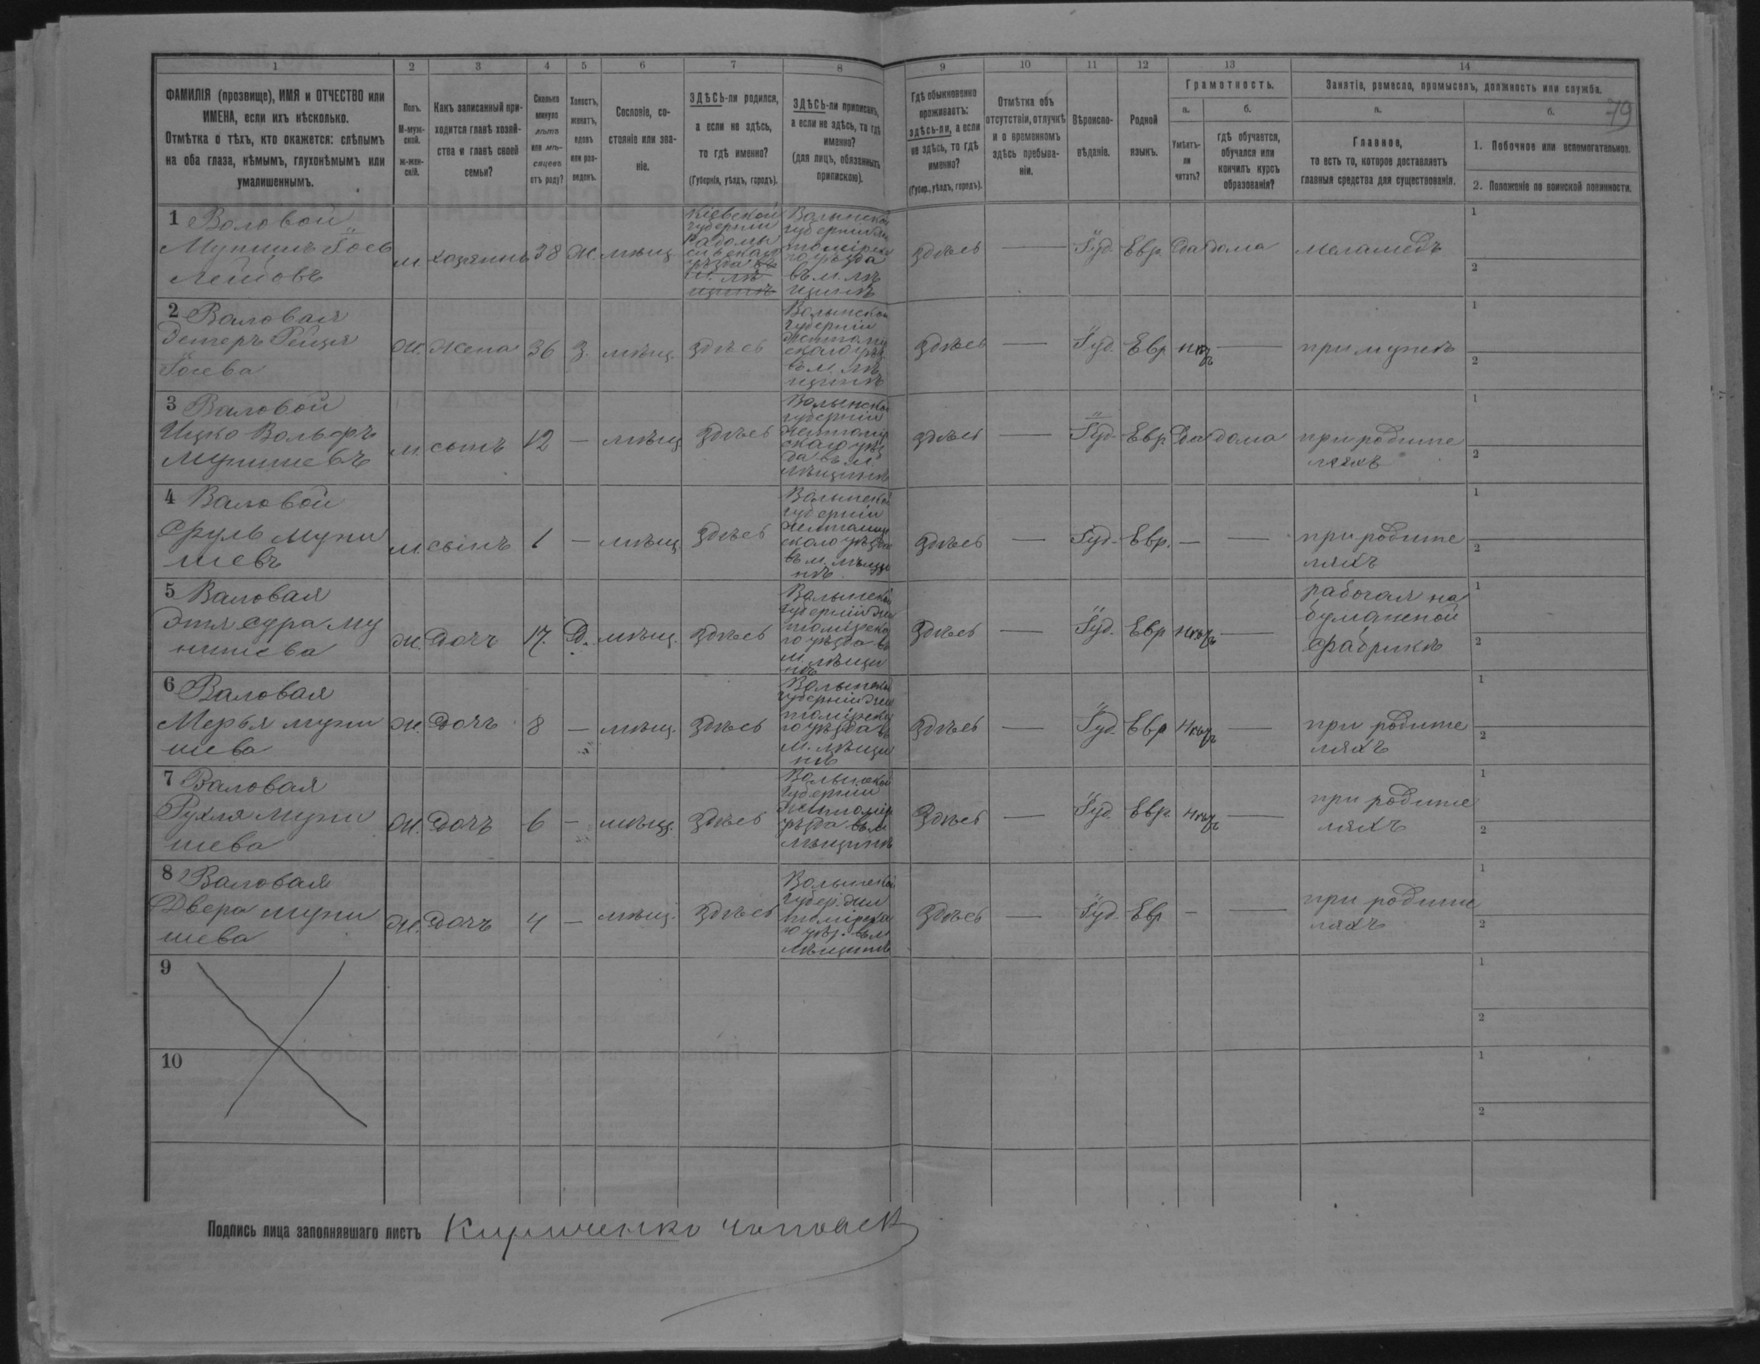 79
1 2 3 4 5 6 7 8 9 10 11 12 13 14
ФАМИЛІЯ (прозвище), ИМЯ и ОТЧЕСТВО или
ИМЕНА, если ихъ нѣсколько.
Отмѣтка о тѣхъ, кто окажется: слѣпымъ
на оба глаза, нѣмымъ, глухонѣмымъ или
умалишеннымъ.
Полъ.
М-муж-
ской.
ж-жен-
скій.
Какъ записанный при-
ходится главѣ хозяй-
ства и главѣ своей
семьи?
Сколько
минуло
лѣтъ
или мѣ-
сяцевъ
отъ роду?
Холостъ,
женатъ,
вдовъ
или раз-
веденъ.
Сословіе, со-
стояніе или зва-
ніе.
ЗДѢСЬ-ли родился,
а если не здѣсь,
то гдѣ именно?
(Губернія, уѣздъ, городъ).
ЗДѢСЬ-ли приписанъ,
а если не здѣсь, то гдѣ
именно?
(для лицъ, обязанныхъ
припискою).
Гдѣ обыкновенно
проживаетъ:
здѣсь-ли, а если
не здѣсь, то гдѣ
именно?
(Губер., уѣздъ, городъ).
Отмѣтка объ
отсутствіи, отлучкѣ
и о временномъ
здѣсь пребыва-
ніи.
Вѣроиспо-
вѣданіе.
Родной
языкъ.
Грамотность.
а.
Умѣетъ-
ли
читать?
б.
гдѣ обучается,
обучался или
кончилъ курсъ
образованія?
Занятіе, ремесло, промыселъ, должность или служба.
а.
Главное,
то есть то, которое доставляетъ
главныя средства для существованія.
б.
1. Побочное или вспомогательное.
2. Положеніе по воинской повинности.
1 Воловой
Мунишъ Іось
Лейбовъ
м хозяинъ 38 Ж. мѣщ.
Кіевской
губерніи
Радомы
сльскаго
уѣзда
Волынской
губерніи Жи
томірска
го уѣзда
въ м. Мѣ
щинѣ
здѣсь — Іуд. Евр. Да дома меламедъ
1
2
2 Валовая
Эстеръ Рейзя
Іосева
Ж. Жена 36 З. мѣщ. здѣсь
Волынской
губерніи
Житомір
скаго уѣз
въ м. Мѣ
щинѣ
здѣсь — Іуд. Евр нѣтъ — при мужѣ
1
2
3 Валовой
Ицко Вольфъ
Мунишевъ
м сынъ 12 — мѣщ здѣсь
Волынской
губерніи
Житомір
скаго уѣз
да въ м.
Мѣщинѣ
здѣсь — Іуд. Евр Да дома при родите
ляхъ
1
2
4 Валовой
Сруль Муни
шевъ
м сынъ 1 — мѣщ здѣсь
Волынской
губерніи
Житомір
скаго уѣзда
въ м. Мѣщи
нѣ
здѣсь — Іуд. Евр. — — при родите
ляхъ
1
2
5 Валовая
Этя Сура Му
нишева
Ж. Дочъ 17. Д. мѣщ. здѣсь
Волынской
губерніи Жи
томірска
го уѣзда въ
м. Мѣщи
нѣ
здѣсь — Іуд. Евр нѣтъ — рабочая на
бумажной
фабрикѣ
1
2
6 Валовая
Мерья Муни
шева
Ж. Дочъ 8 — мѣщ. здѣсь
Волынской
губерніи Жи
томірска
го уѣзда въ
м. Мѣщи
нѣ
здѣсь — Іуд. Евр нѣтъ — при родите
ляхъ
1
2
7 Валовая
Рухля Муни
шева
Ж. Дочъ 6 — мѣщ. здѣсь
Волынской
губерніи
Житомір
уѣзда въ м
Мѣщинѣ
здѣсь — Іуд. Евр. нѣтъ — при родите
ляхъ
1
2
8 Валовая
Двера Муни
шева
Ж. Дочъ 4 — мѣщ. здѣсь
Волынской
губер. Жи
томірска
го уѣз. въ м
Мѣщинѣ
здѣсь — Іуд. Евр — — при родите
ляхъ
1
2
9
1
2
10
1
2
Подпись лица заполнявшаго листъ Кириченко